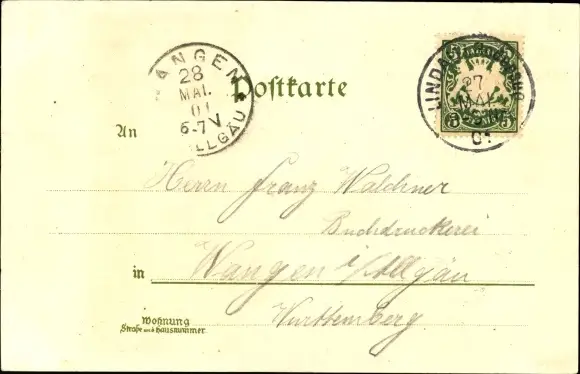 WANGEN
28
MAI.
01
6-7 V
ALLGÄU
Postkarte
LINDAU
27
MAI
01
5 5
An
Herrn Franz Walchner
Buchdruckerei
in Wangen i/Allgäu
Württemberg
Wohnung
Straße und Hausnummer